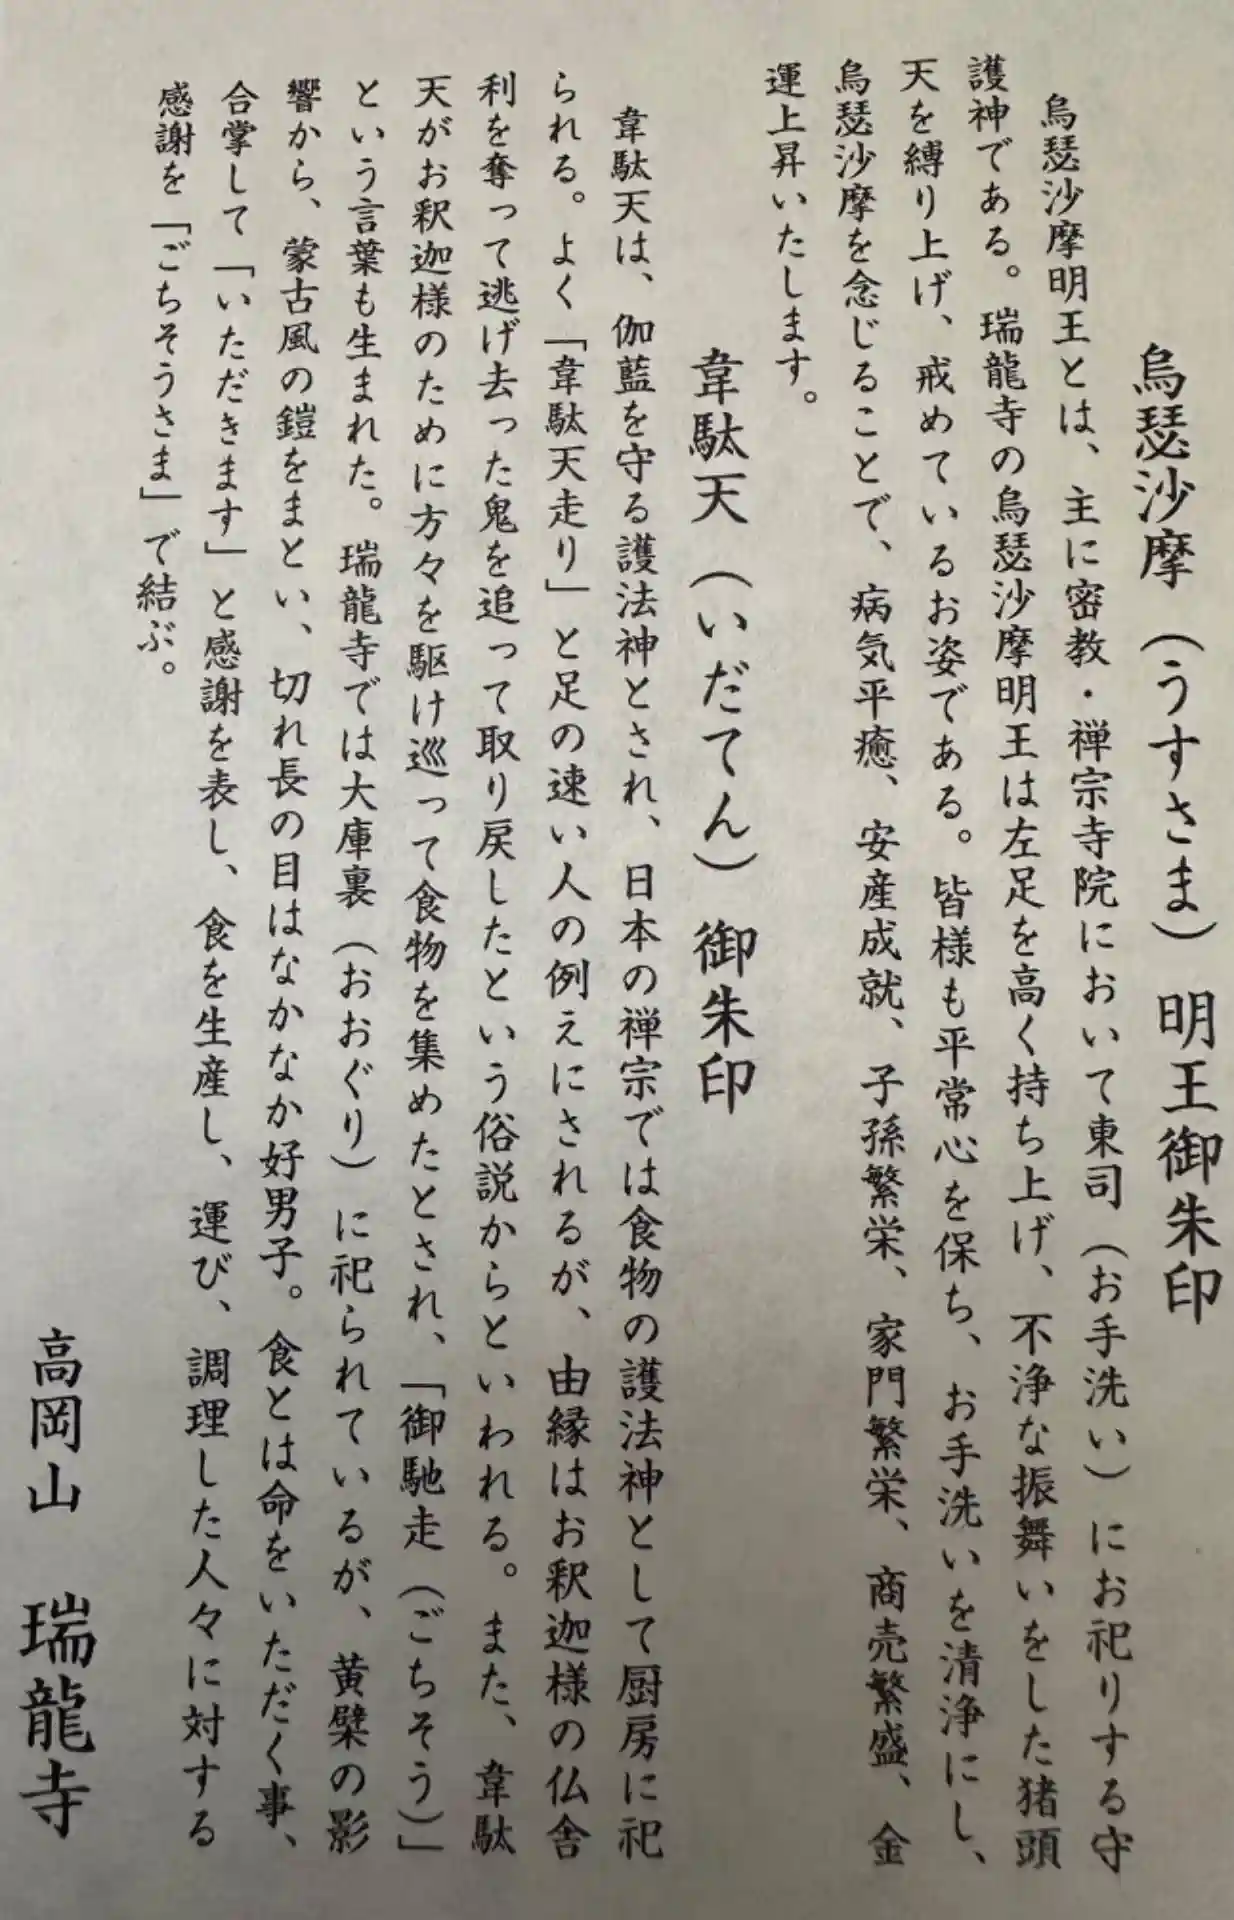 烏瑟沙摩（うすさま）明王御朱印
烏瑟沙摩明王とは、主に密教・禅宗寺院において東司（お手洗い）にお祀りする守
護神である。瑞龍寺の烏瑟沙摩明王は左足を高く持ち上げ、不浄な振舞いをした猪頭
天を縛り上げ、戒めているお姿である。皆様も平常心を保ち、お手洗いを清浄にし、
烏瑟沙摩を念じることで、病気平癒、安産成就、子孫繁栄、家門繁栄、商売繁盛、金
運上昇いたします。
韋駄天（いだてん）御朱印
韋駄天は、伽藍を守る護法神とされ、日本の禅宗では食物の護法神として厨房に祀
られる。よく「韋駄天走り」と足の速い人の例えにされるが、由縁はお釈迦様の仏舎
利を奪って逃げ去った鬼を追って取り戻したという俗説からといわれる。また、韋駄
天がお釈迦様のために方々を駆け巡って食物を集めたとされ、「御馳走（ごちそう）」
という言葉も生まれた。瑞龍寺では大庫裏（おおぐり）に祀られているが、黄檗の影
響から、蒙古風の鎧をまとい、切れ長の目はなかなか好男子。食とは命をいただく事、
合掌して「いただきます」と感謝を表し、食を生産し、運び、調理した人々に対する
感謝を「ごちそうさま」で結ぶ。
高岡山　瑞龍寺